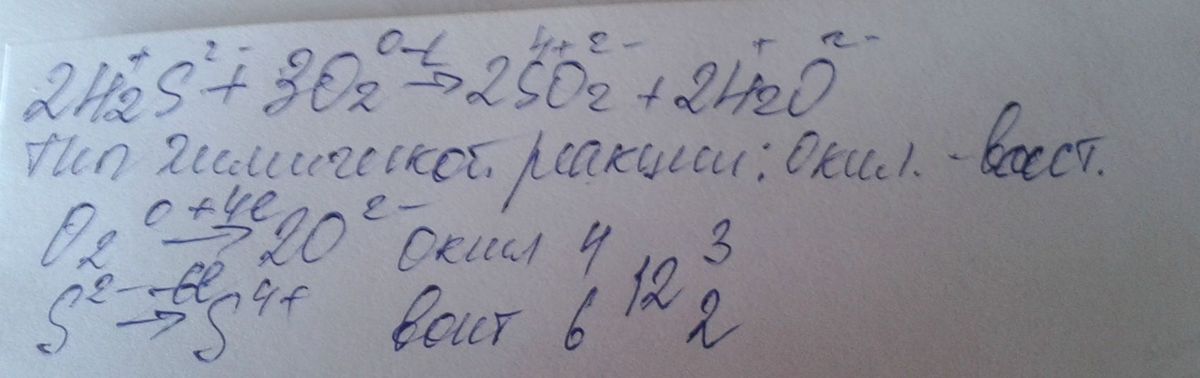 2H₂⁺S²⁻ + 3O₂⁰ → 2S⁴⁺O₂²⁻ + 2H₂⁺O²⁻
Тип химической реакции: окисл. - восст.
O₂⁰ +4e → 2O²⁻ окисл 4 12 3
S²⁻ -6e → S⁴⁺ восст 6 2